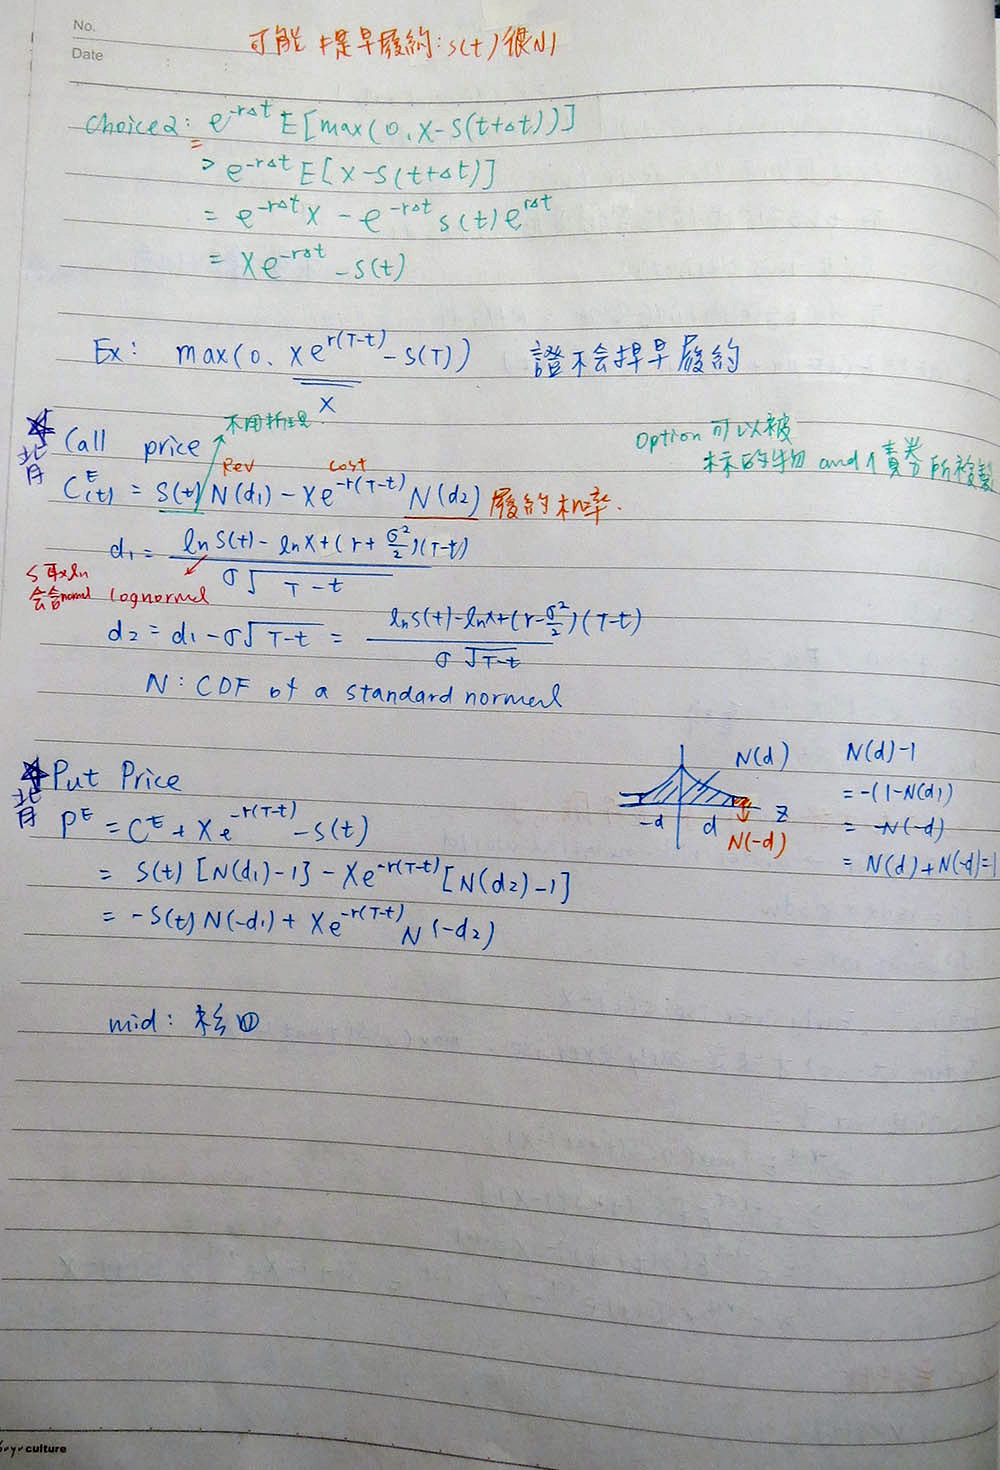 No.
Date
可能提早履約:S(t)很小
choice2: e^{-rΔt} E[max(0, X-S(t+Δt))]
> e^{-rΔt} E[X-S(t+Δt)]
= e^{-rΔt} X - e^{-rΔt} S(t) e^{rΔt}
= Xe^{-rΔt} - S(t)
Ex: max(0, Xe^{r(T-t)} - S(T)) 證不會提早履約
X
Call price 不用折現
背
Option 可以被
標的物 and 債券所複製
Rev cost
C^E(t) = S(t) N(d₁) - Xe^{-r(T-t)} N(d₂) 履約機率.
d₁ = \frac{ln S(t) - ln X + (r + \frac{σ²}{2})(T-t)}{σ√T-t}
S 取 ln
會台normal lognormal
d₂ = d₁ - σ√T-t = \frac{ln S(t) - ln X + (r - \frac{σ²}{2})(T-t)}{σ√T-t}
N: CDF of a standard normal
Put Price
背
P^E = C^E + Xe^{-r(T-t)} - S(t)
= S(t) [N(d₁)-1] - Xe^{-r(T-t)} [N(d₂)-1]
= -S(t) N(-d₁) + Xe^{-r(T-t)} N(-d₂)
N(d)
-d d z
N(-d)
N(d)-1
= -(1-N(d))
= -N(-d)
= N(d)+N(-d)=1
mid:
culture